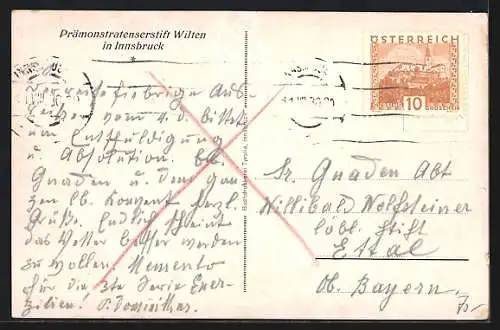 Prämonstratenserstift Wilten
in Innsbruck
ÖSTERREICH
10
GROSCHEN
bittet
um Entschuldigung
u. Absolution. Ew.
Gnaden u. dem gan-
zen lb. Konvent herzl.
Grüße. Endlich scheint
das Wetter besser werden
zu wollen. Memento
für die 3te Serie Exer-
zitien! P. Dominikus.
Buchdruckerei Tyrolia, Innsbruck
Sr. Gnaden Abt
Willibald Wolfsteiner
löbl. Stift
Ettal
Ob. Bayern.